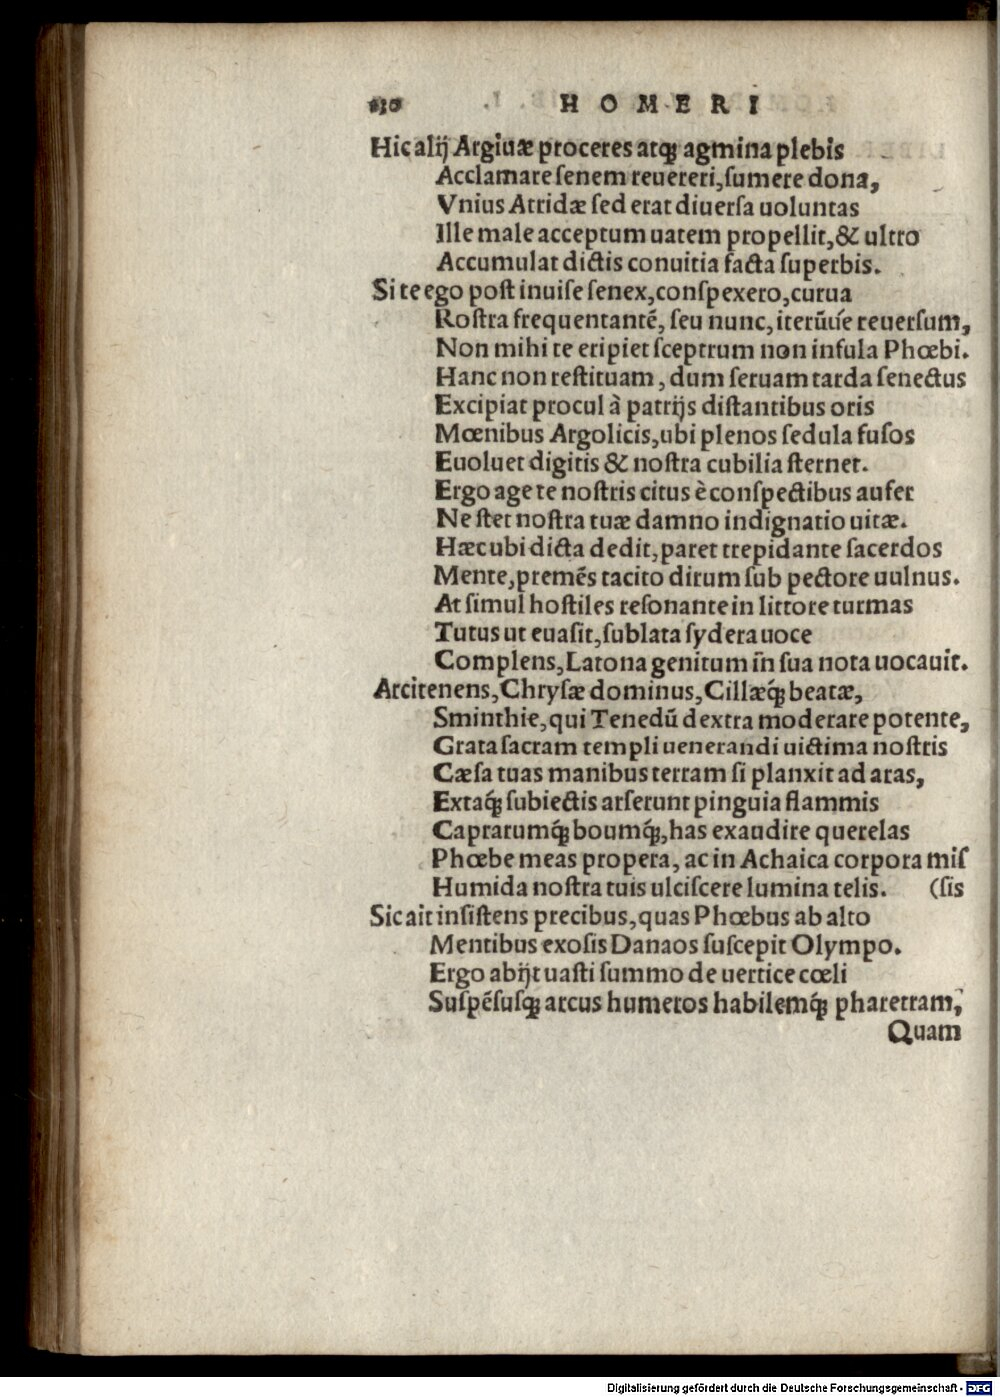 130 HOMERI
Hic alij Argiuæ proceres atq́; agmina plebis
Acclamare ſenem reuereri, ſumere dona,
Vnius Atridæ ſed erat diuerſa uoluntas
Ille male acceptum uatem propellit, & ultro
Accumulat dictis conuitia facta ſuperbis.
Si te ego poſt inuiſe ſenex, conſpexero, curua
Roſtra frequentantẽ, ſeu nunc, iterũue reuerſum,
Non mihi te eripiet ſceptrum non infula Phœbi.
Hanc non reſtituam, dum ſeruam tarda ſenectus
Excipiat procul à patrijs diſtantibus oris
Mœnibus Argolicis, ubi plenos ſedula fuſos
Euoluet digitis & noſtra cubilia ſternet.
Ergo age te noſtris citus è conſpectibus aufer
Ne ſtet noſtra tuæ damno indignatio uitæ.
Hæc ubi dicta dedit, paret trepidante ſacerdos
Mente, premẽs tacito dirum ſub pectore uulnus.
At ſimul hoſtiles reſonante in littore turmas
Tutus ut euaſit, ſublata ſydera uoce
Complens, Latona genitum ĩn ſua nota uocauit.
Arcitenens, Chryſæ dominus, Cillæq́; beatæ,
Sminthie, qui Tenedũ dextra moderare potente,
Grata ſacram templi uenerandi uictima noſtris
Cæſa tuas manibus terram ſi planxit ad aras,
Extaq́; ſubiectis arſerunt pinguia flammis
Caprarumq́; boumq́;, has exaudire querelas
Phœbe meas propera, ac in Achaica corpora miſ
Humida noſtra tuis ulciſcere lumina telis. (ſis
Sic ait inſiſtens precibus, quas Phœbus ab alto
Mentibus exoſis Danaos ſuſcepit Olympo.
Ergo abijt uaſti ſummo de uertice cœli
Suſpẽſuſq; arcus humeros habilemq́; pharetram,
Quam
Digitalisierung gefördert durch die Deutsche Forschungsgemeinschaft - DFG